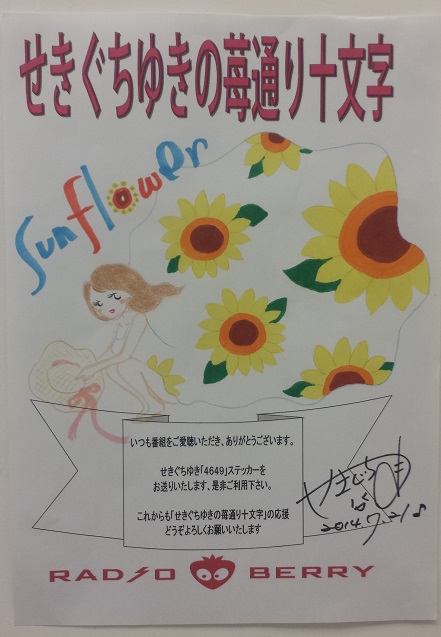 せきぐちゆきの苺通り十文字
Sunflower
いつも番組をご愛聴いただき、ありがとうございます。
せきぐちゆき「4649」ステッカーを
お送りいたします、是非ご利用下さい。
これからも「せきぐちゆきの苺通り十文字」の応援
どうぞよろしくお願いいたします
せきぐちゆき
2014.7.21
RADIO BERRY